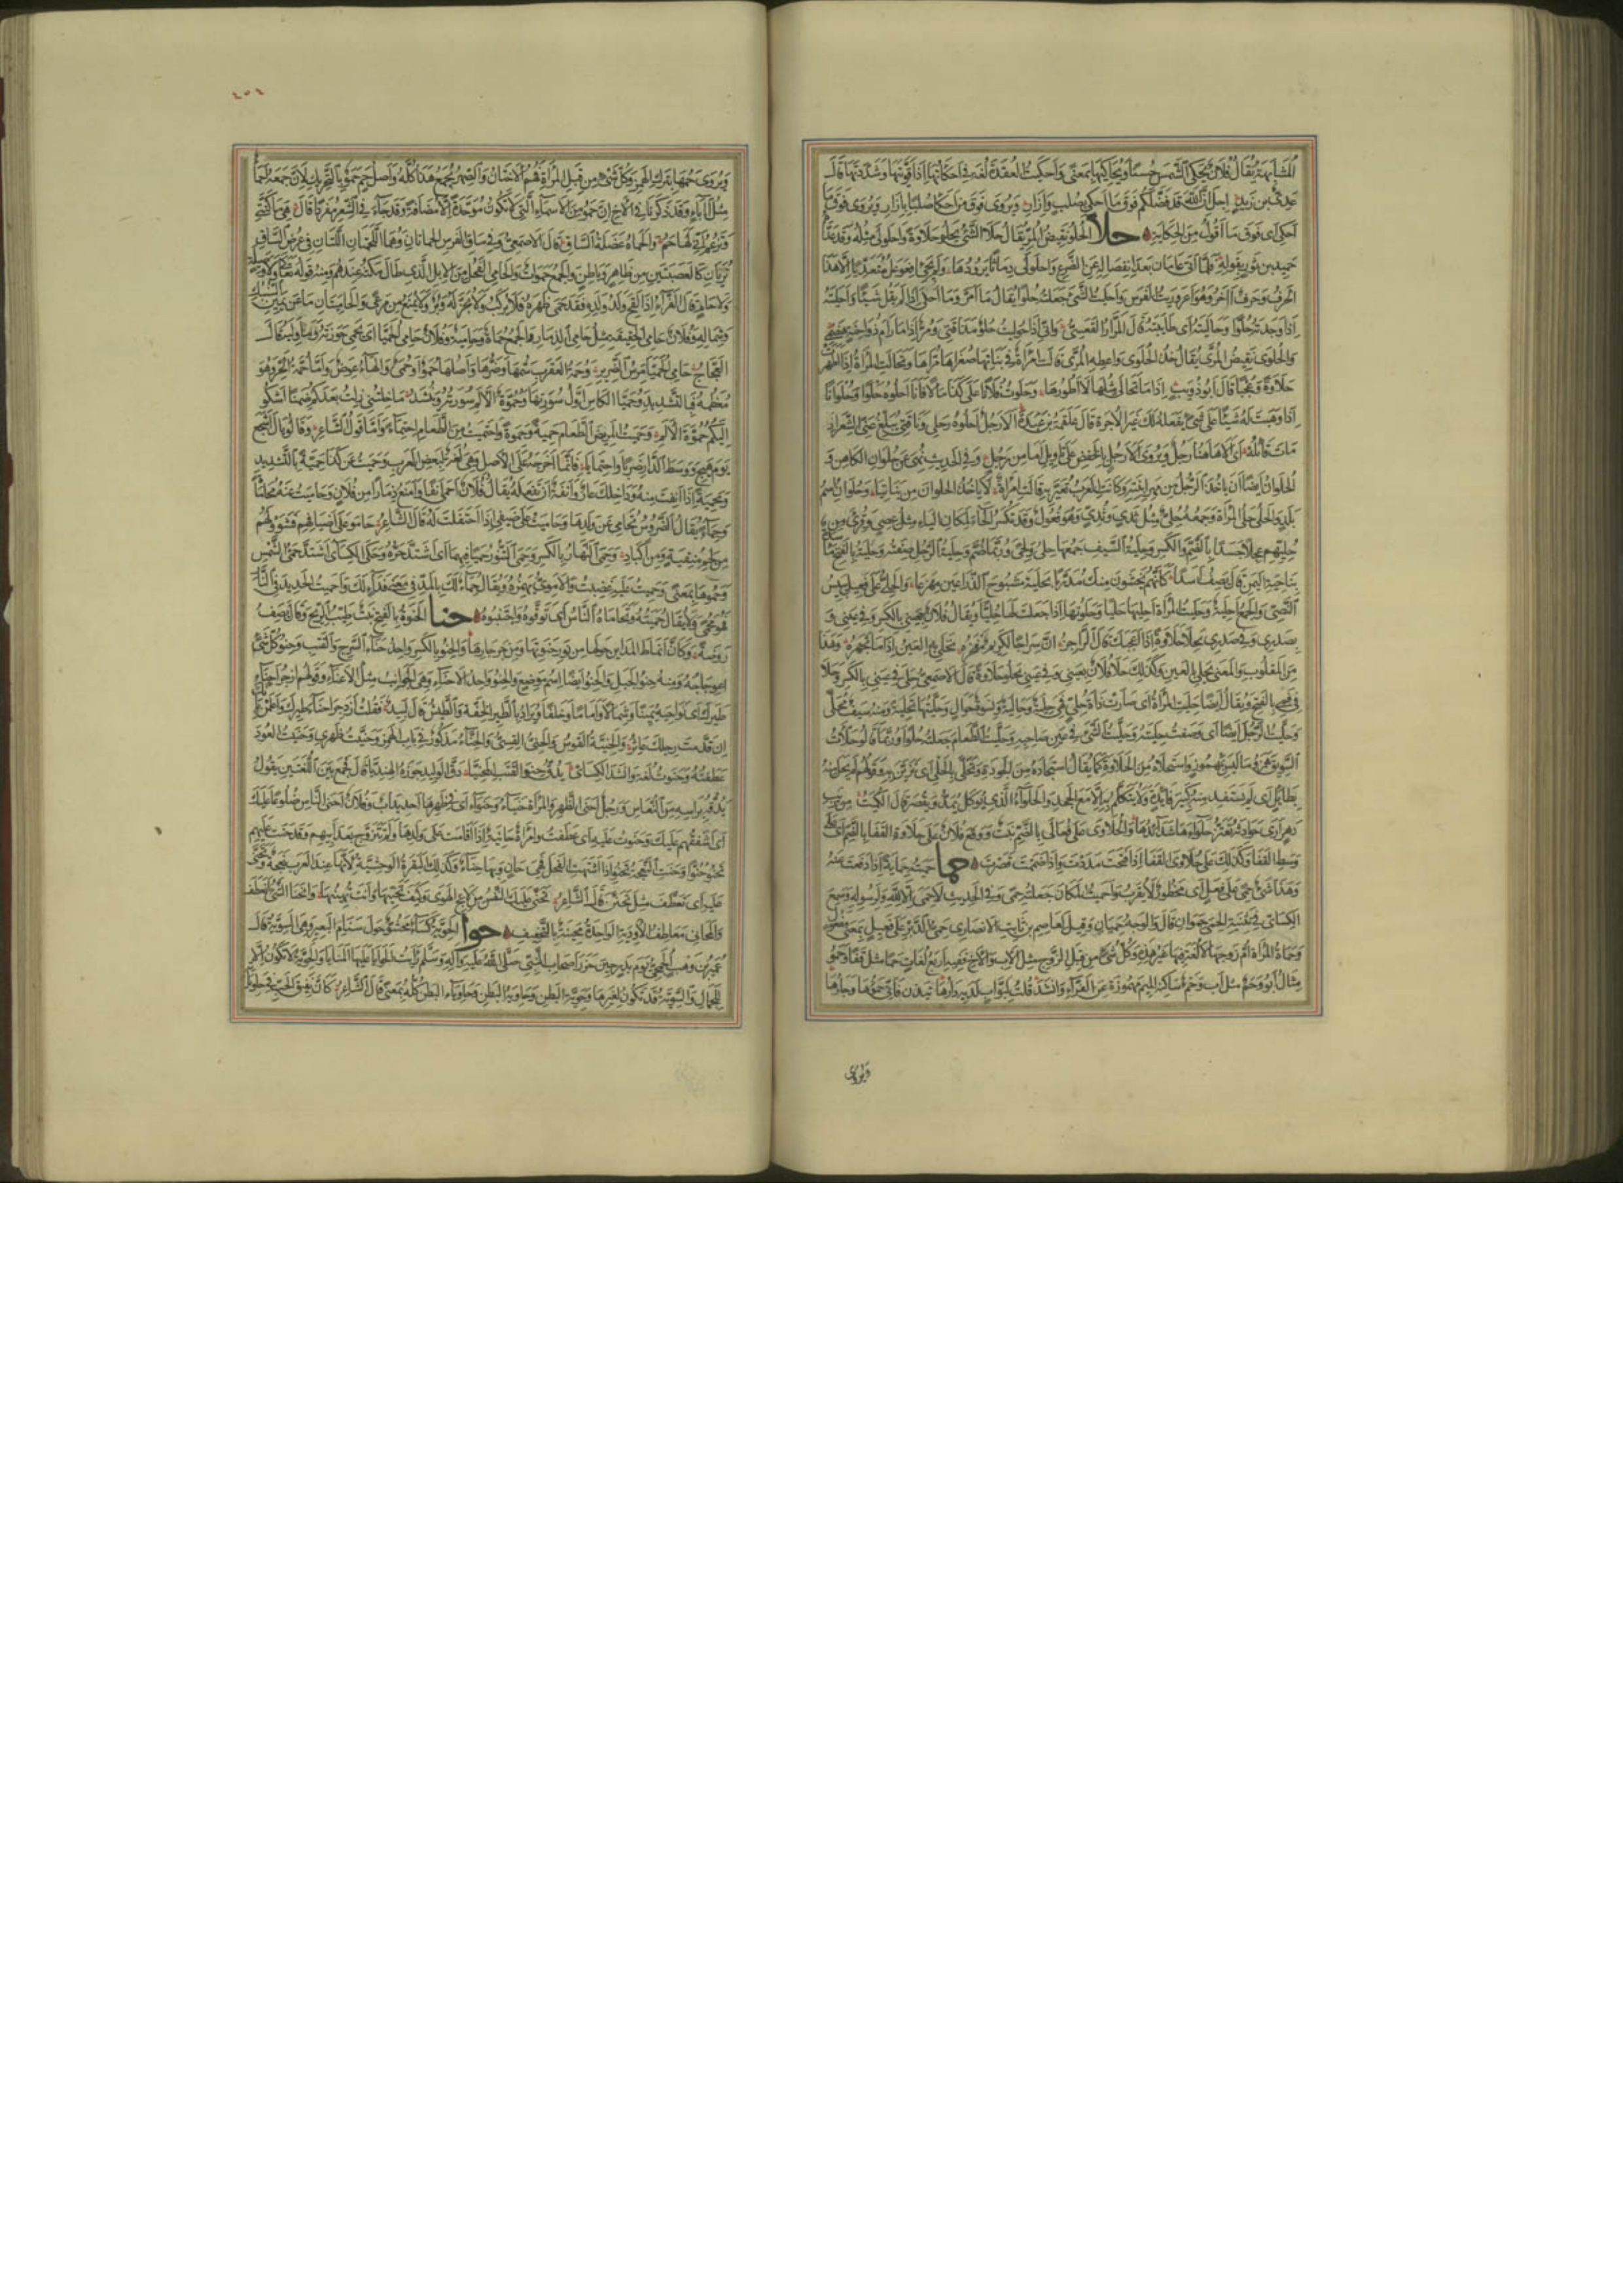 المشابهة يقال فلان يحكي الشمس حسنا ويحاكيها بمعنى واحكيت العقدة لغة في احكاتها اذا قويتها وشددتها قال
عدي بن زيد اجل ان الله قد فضلكم فوق ما احكي بصلب وازار ويروى فوق من احكا صلبا بازار ويروى فوق ما
احكى اى فوق ما اقول من الحكاية حلا الحلو نقيض المر يقال حلا الشئ يحلو حلاوة واحلولى مثله وقد عداه
حميد بن ثور بقوله فلما اتى عامان بعد انفصاله عن الضرع واحلولى دماثا يرودها ولم يجئ افعوعل متعديا الا هذا
الحرف وحرف اخر وهو اعروريت الفرس واحليت الشئ جعلته حلوا يقال ما امر وما احلى اذا لم يقل شيئا واحليته
اذا وجدته حلوا وحاليته اى طايبته قال المرار الفقعسي وانى اذا حوليت حلو مذاقتي ومر اذا ما رام ذو احنة هضمي
والحلوى نقيض المرى يقال خذ الحلوى واعطه المرى قالت امراة في بناتها صغراها مراها وتحالت المراة اذا اظهرت
حلاوة وعجبا قال ابو ذويب اذا ما تحالى مثلها لا اطورها وحلوت فلانا على كذا مالا فانا احلوه حلوا وحلوانا
اذا وهبت له شيئا على شئ يفعله لك غير الاجرة قال علقمة بن عبدة الا رجل احلوه رحلي وناقتي يبلغ عني الشعر اذ
مات قائله اى الا هاهنا رجل ويروى الا رجل بالخفض على تاويل اما من رجل وفي الحديث نهى عن حلوان الكاهن و
الحلوان ايضا ان ياخذ الرجل من مهر ابنته وكانت العرب تعير به قالت امراة لا ياخذ الحلوان من بناتيا وحلوان اسم
بلد والحلي حلي المراة وجمعه حلي مثل ثدي وثدي وهو فعول وقد تكسر الحاء لمكان الياء مثل عصي وقرئ من
حليهم عجلا جسدا بالضم والكسر وحلية السيف جمعها حلى ولحى وربما ضم وحلية الرجل صفته وحلية بالفتح ماسدة
بناحية اليمن قال يصف اسدا كانهم يخشون منك مدربا بحلية مشبوح الذراعين مهزعا والحلي على فعيل يبيس
النصي والجمع احلية وحليت المراة احليها حليا وحلوتها اذا جعلت لها حليا ويقال حلي فلان بعيني بالكسر وفي عيني و
بصدري وفي صدري يحلى حلاوة اذا اعجبك قال الراجز ان سراجا لكريم مفخره تحلى به العين اذا ما تجهره وهذا
من المقلوب والمعنى يحلى بالعين وكذلك حلا فلان بعيني وفي عيني يحلو حلاوة قال الاصمعي حلي في عيني بالكسر وحلا
في فمي بالفتح ويقال ايضا حليت المراة اى صارت ذات حلي فهي حلية وحالية ونسوة حوال وحليتها تحلية ومنه سيف محلى
وحليت الرجل ايضا اى وصفت حليته وحليت الشئ في عين صاحبه وحليت الطعام جعلته حلوا وربما قالوا حلات
السويق همزوا ما ليس بمهموز واستحلاه من الحلاوة كما يقال استجاده من الجودة وتحلى بالحلي اى تزين به وقولهم لم يحل منه
بطائل اى لم يستفد منه كبير فائدة ولا يتكلم به الا مع الجحد والحلواء الذي يؤكل يمد ويقصر قال الكميت من ريب
دهر ارى حوادثه تعتز حلواءها شدائدها والحلاوى على فعالى بالضم نبت ووقع فلان على حلاوة القفا بالضم اى على
وسط القفا وكذلك على حلاوى القفا اذا فتحت مددت واذا ضممت قصرت حما حميته حماية اذا دفعت عنه
وهذا شئ حمى على فعل اى محظور لا يقرب واحميت المكان جعلته حمى وفي الحديث لا حمى الا لله ولرسوله وسمع
الكسائي في تثنية الحمى حموان قال والوجه حميان وقيل لعاصم بن ثابت الانصاري حمي الدبر على فعيل بمعنى مفعول
وحماة المراة ام زوجها لا لغة فيها غير هذه وكل شئ من قبل الزوج مثل الاب والاخ ففيه اربع لغات حما مثل قفا وحمو
مثال ابو وحم مثل اب وحمء ساكنة الميم مهموزة عن الفراء وانشد قلت لبواب لديه دارها تيذن فاني حمؤها وجارها
ويروى
٤٥٤
ويروى حمها بترك الهمز وكل شئ من قبل المراة فهم الاختان والصهر يجمع هذا كله واصل حم حمو بالتحريك لان جمعه احماء
مثل اباء وقد ذكرنا في الاخ ان حمو من الاسماء التي لا تكون موحدة الا مضافة وقد جاء في الشعر مفردا قال هي ما كنتي
وتزعم انى لها حمو والحماة عضلة الساق قال الاصمعي وفي ساق الفرس الحماتان وهما اللحمتان اللتان في عرض الساق
تريان كالعصبتين من ظاهر وباطن والجمع حموات والحامي الفحل من الابل الذي طال مكثه عندهم ومنه قوله تعالى ولا وصيلة
ولا حام قال الفراء اذا لقح ولد ولده فقد حمى ظهره فلا يركب ولا يجز له وبر ولا يمنع من مرعى والحاميتان ما عن يمين السنبك
وشماله وفلان حامي الحقيقة مثل حامي الذمار والجمع حماة وحامية وفلان حامي الحميا اى يحمي حوزته وما وليه قال
العجاج حامي الحميا مرس الضرير وحمة العقرب سمها وضرها واصلها حمو او حمي والهاء عوض واما حمة الحر وهو
معظمه فبالتشديد وحميا الكاس اول سورتها وحموة الالم سورته وينشد ما خلتني زلت بعدكم ضمنا اشكو
اليكم حموة الالم وحميت المريض الطعام حمية وحموة واحتميت من الطعام احتماء واما قول الشاعر وقالوا يال اشجع
يوم هيج ووسط الدار ضربا واحتمايا فانما اخرجه على الاصل وهي لغة لبعض العرب وحميت عن كذا حمية بالتشديد
ومحمية اذا انفت منه وداخلك عار وانفة ان تفعله يقال فلان احمى انفا وامنع ذمارا من فلان وحاميت عنه محاماة
وحماء يقال الضروس تحامي عن ولدها وحاميت على ضيفي اذا احتفلت له قال الشاعر حاموا على اضيافهم فشووا لهم
من لحم منقية ومن اكباد وحمي النهار بالكسر وحمي التنور حميا فيهما اى اشتد حره وحكى الكسائي اشتد حمي الشمس
وحموها بمعنى وحميت عليه غضبت والاموي يهمزه ويقال حماء لك بالمد في معنى فداء لك واحميت الحديد في النار
فهو محمى ولا يقال حميته وتحاماه الناس اى توقوه واجتنبوه حنا الحنوة بالفتح نبت طيب الريح وقال يصف
روضة وكان انماط المداين حولها من نور حنوتها ومن جرجارها والحنو بالكسر واحد احناء السرج والقتب وحنو كل شئ
اعوجاجه ومنه حنو الجبل والحنو ايضا اسم موضع والحنو واحد الاحناء وهي الجوانب مثل الاعناء وقولهم ازجر احناء
طيرك اى نواحيه يمينا وشمالا واماما وخلفا ويراد بالطير الخفة والطيش قال لبيد فقلت ازدجر احناء طيرك واعلمن بانك
ان قدمت رجلك عاثر والحنية القوس والحني القسي والحناء مذكور في باب الهمز وحنيت ظهري وحنيت العود
عطفته وحنوت لغة وانشد الكسائي يدق حنو القتب المحنيا دق الوليد جوزه الهنديا قال فجمع بين اللغتين يقول
يدقه براسه من النعاس ورجل احنى الظهر والمراة حنياء وحنواء اى في ظهرها احديداب وفلان احنى الناس ضلوعا عليك
اى اشفقهم عليك وحنوت عليه اى عطفت وامراة حانية اذا اقامت على ولدها ولم تتزوج بعد ابيهم وقد حنت عليهم
تحنو حنوا وحنت النعجة تحنو اذا اشتهت الفحل فهي حان وبها حناء وكذلك البقرة الوحشية لانها عند العرب نعجة وتحنى
عليه اى تعطف مثل تحنن قال الشاعر تحنى عليك النفس من لاعج الهوى وكيف تحنيها وانت تهينها وانحنا الشئ انعطف
والمحاني معاطف الاودية الواحدة محنية بالتخفيف حوا الحوية كساء محشو حول سنام البعير وهي السوية قال
عمير بن وهب الجمحي يوم بدر حين حزر اصحاب النبي صلى الله عليه واله وسلم رايت الحوايا عليها المنايا والحوية لا تكون الا
للجمال والسوية قد تكون لغيرها وحوية البطن وحاوية البطن وحاوياء البطن كله بمعنى قال الشاعر كان نقيق الحب في حاويائه